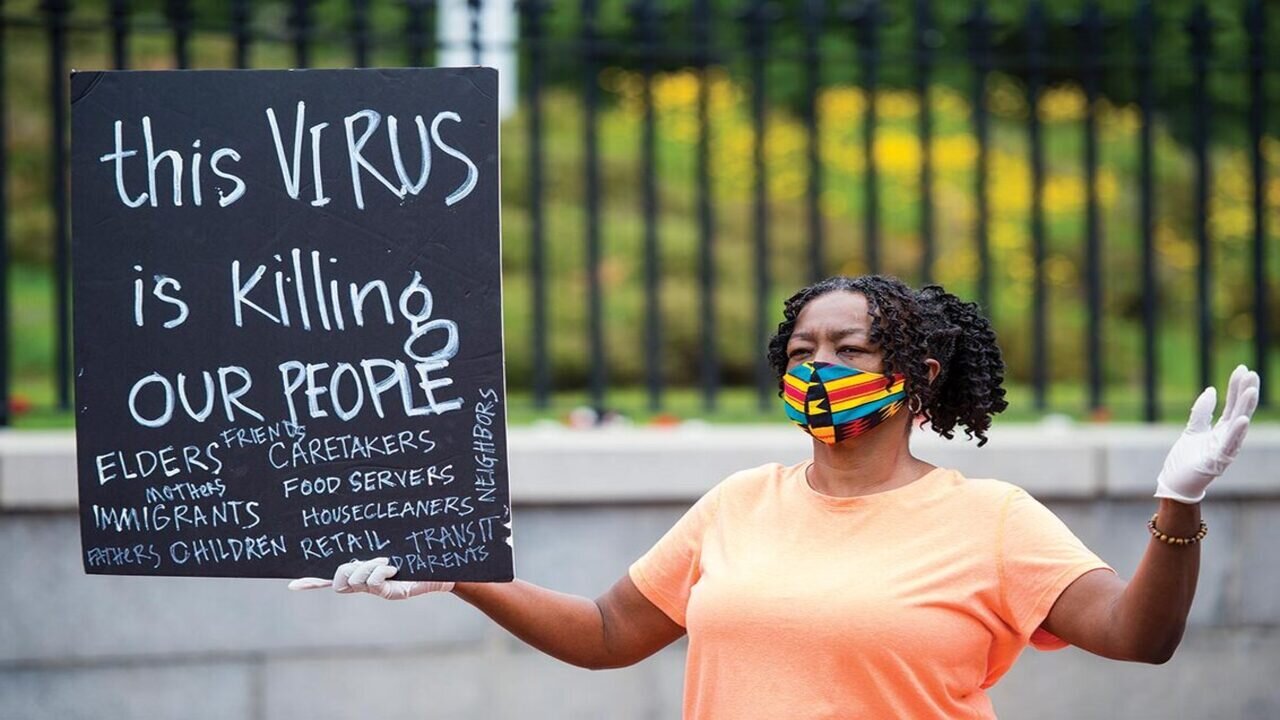 this VIRUS
is killing
OUR PEOPLE
FRIENDS
ELDERS CARETAKERS
MOTHERS FOOD SERVERS
NEIGHBORS
IMMIGRANTS HOUSECLEANERS
FATHERS CHILDREN RETAIL TRANSIT